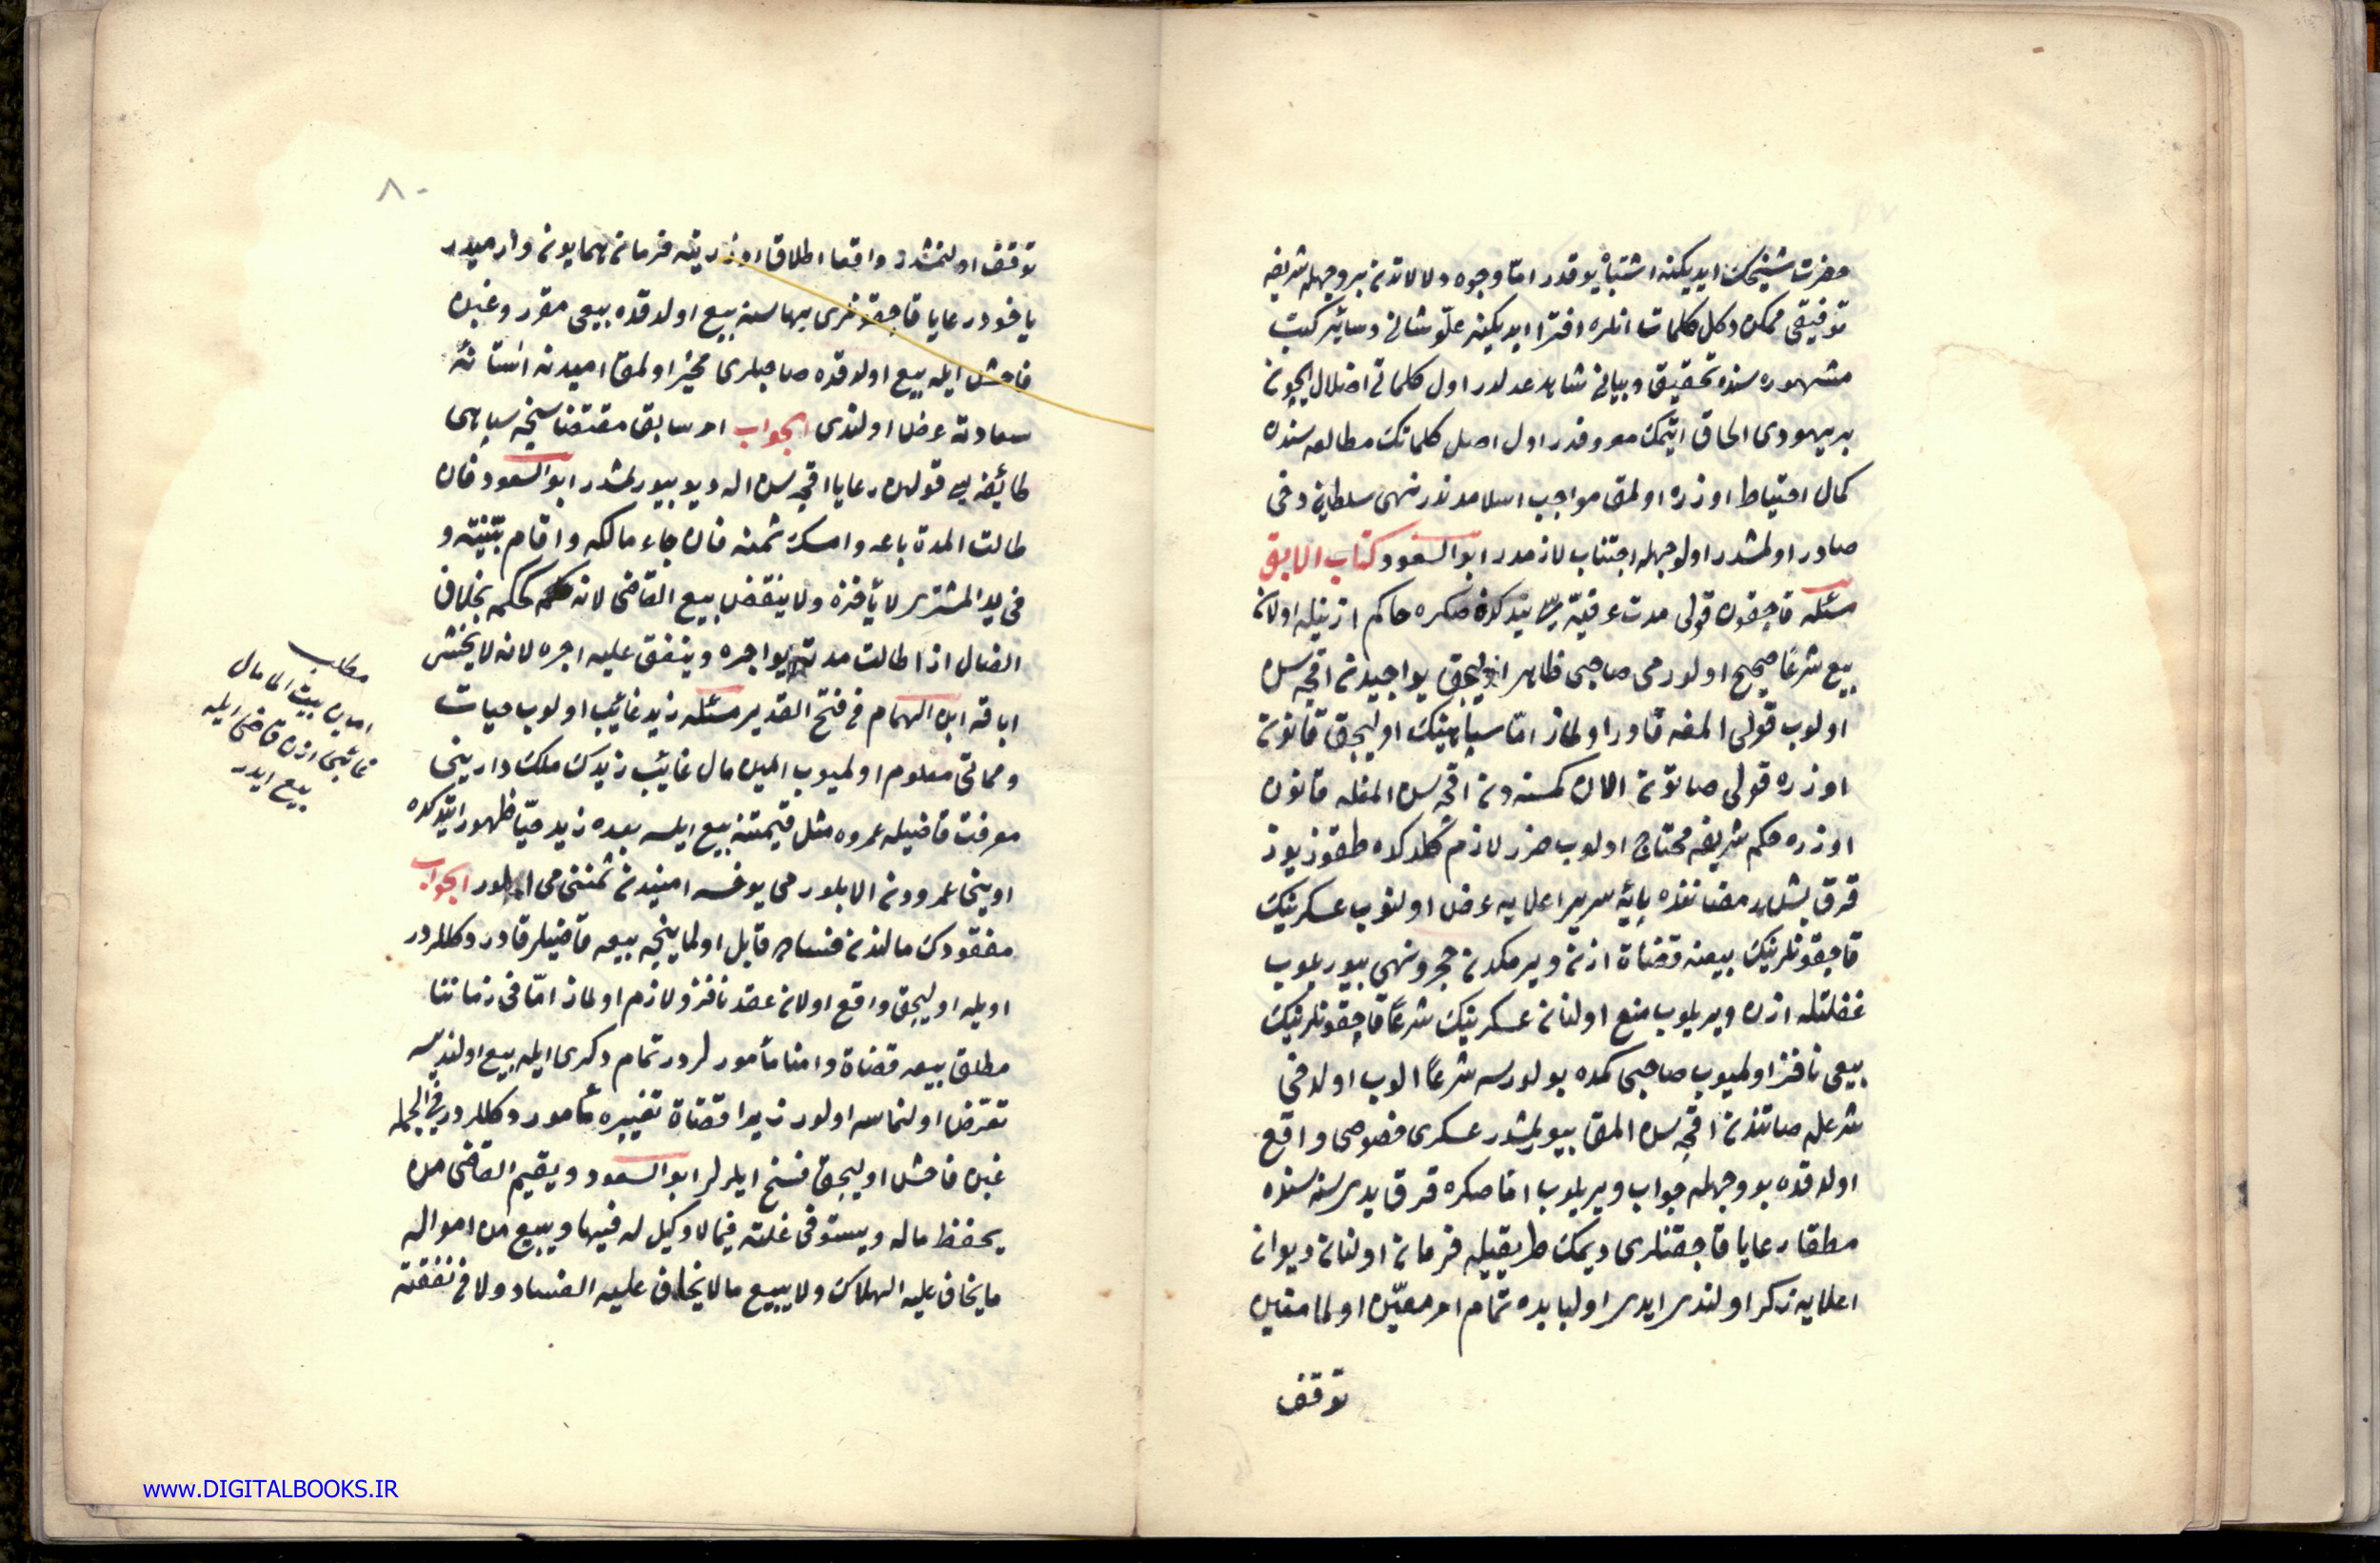 حضرت شیخک ایدیکنه اشتباه یوقدر اما وجوه دلالاتدن بر وجهله شریفه
توفیقی ممکن دکل کلمات انلره افترا ایدیکنه علو شانی و سائر کتب
مشهوره سنده تحقیق و بیانی شاهد عدلدر اول کلماتی اضلال ایچون
بر یهودی الحاق ایتمک معروفدر اول اصل کلماتک مطالعه سنده
کمال احتیاط اوزره اولمق مواجب اسلامدندر نهی سلطانی دخی
صادر اولمشدر اولوجهله اجتناب لازمدر ابوالسعود کتاب الابق
مسئله قاچقون قولی مدت عرفیه سی یتدکدن صکره حاکم اذنیله اولان
بیع شرعا صحیح اولورمی صاحبی ظاهر اولیجق یواجیدن اقچه سن
اولوب قولی المغه قادر اولماز اما سپاهینک اولیجق قانون
اوزره قولی صاتون الان کمسنه دن اقچه سن المغله قانون
اوزره حکم شریفه محتاج اولوب ضرر لازم کلدکده طقوز یوز
قرق بش رمضاننده پایه سریر اعلایه عرض اولنوب عسکرینک
قاچقونلرینک بیعنه قضاة اذن ویرمکدن حجر و نهی بیوریلوب
غفلتله اذن ویریلوب منع اولنان عسکرینک شرعا قاچقونلرینک
بیعی نافذ اولمیوب صاحبی کمده بولورسه شرعا الوب اولدخی
شرعله صاتندن اقچه سن المق بیورلمشدر عسکری خصوصی واقع
اولدقده بو وجهله جواب ویریلوب اما صکره قرق یدی سنه سنده
مطلقا رعایا قاچقنلری دیمک طریقیله فرمان اولنان دیوان
اعلایه ذکر اولندی ایدی اولبابده تمام امر معین اولمامغین
توقف
٨٠
توقف اولنمشدر واقعا اطلاق اوزرینه فرمان همایون وارمیدر
یاخود رعایا قاچقونلری بهاسنه بیع اولدقده بیعی مقرر و غبن
فاحش ایله بیع اولدقده صاحبلری مخیر اولمق امیدنه استانه
سعادته عرض اولندی الجواب امر سابق مقتضاسنجه سپاهی
طائفه سی قولن رعایا اقچه سن اله دیو بیورلمشدر ابوالسعود فان
طالت المدة باعه وامسک ثمنه فان جاء مالکه واقام بینته و
فی ید المشتری لا یأخذه ولا ینقض بیع القاضی لانه حکمه بخلاف
الضال اذا طالت مدته یواجره وینفق علیه اجره لانه لا یخشی
اباقه ابن الهمام فی فتح القدیر مسئله زید غائب اولوب حیات
و مماتی معلوم اولمیوب امین مال غائب زیدک ملک دارینی
معرفت قاضیله عمروه مثل قیمتنه بیع ایلسه بعده زید حیا ظهور ایتدکده
اوینی عمرودن الابلورمی یوخسه امیندن ثمننی می الور الجواب
مفقودک مالندن فساده قابل اولماینجه بیعه قاضیلر قادر دکللردر
اویله اولیجق واقع اولان عقد نافذ و لازم اولماز اما فی زماننا
مطلق بیعه قضاة و امنا مأمورلردر تمام دکری ایله بیع اولندیسه
تعرض اولنماسه اولور زیرا قضاة تغییره مأمور دکللردر فی الجمله
غبن فاحش اولیجق فسخ ایلرلر ابوالسعود ویقیم القاضی من
یحفظ ماله ویستوفی غلته فیما لا وکیل له فیها ویبیع من امواله
ما یخاف علیه الهلاک ولا یبیع ما لا یخاف علیه الفساد ولا فی نفقته
مطلب
امین بیت المال
غائبی اذن قاضی ایله
بیع ایدر
www.DIGITALBOOKS.IR